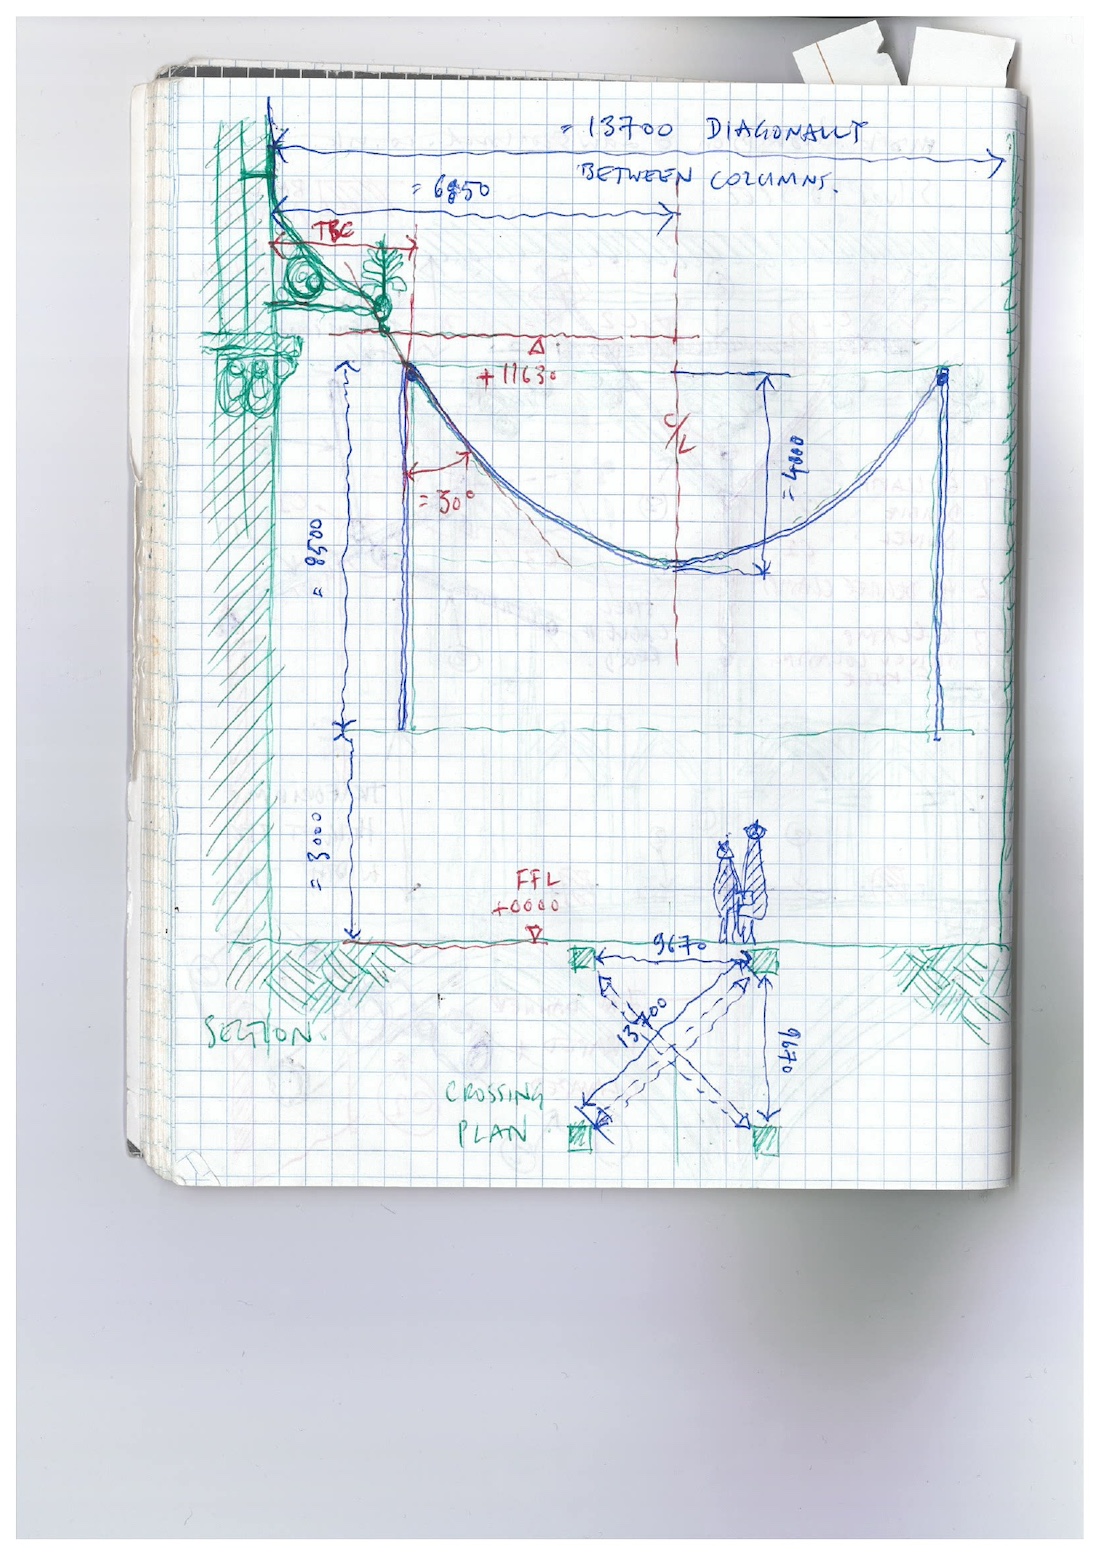 = 13700 DIAGONALLY
BETWEEN COLUMNS.
= 6850
TBC
+11630
C/L
= 4000
= 30°
= 8500
= 3000
FFL
+0000
9670
13700
9670
SECTION.
CROSSING
PLAN